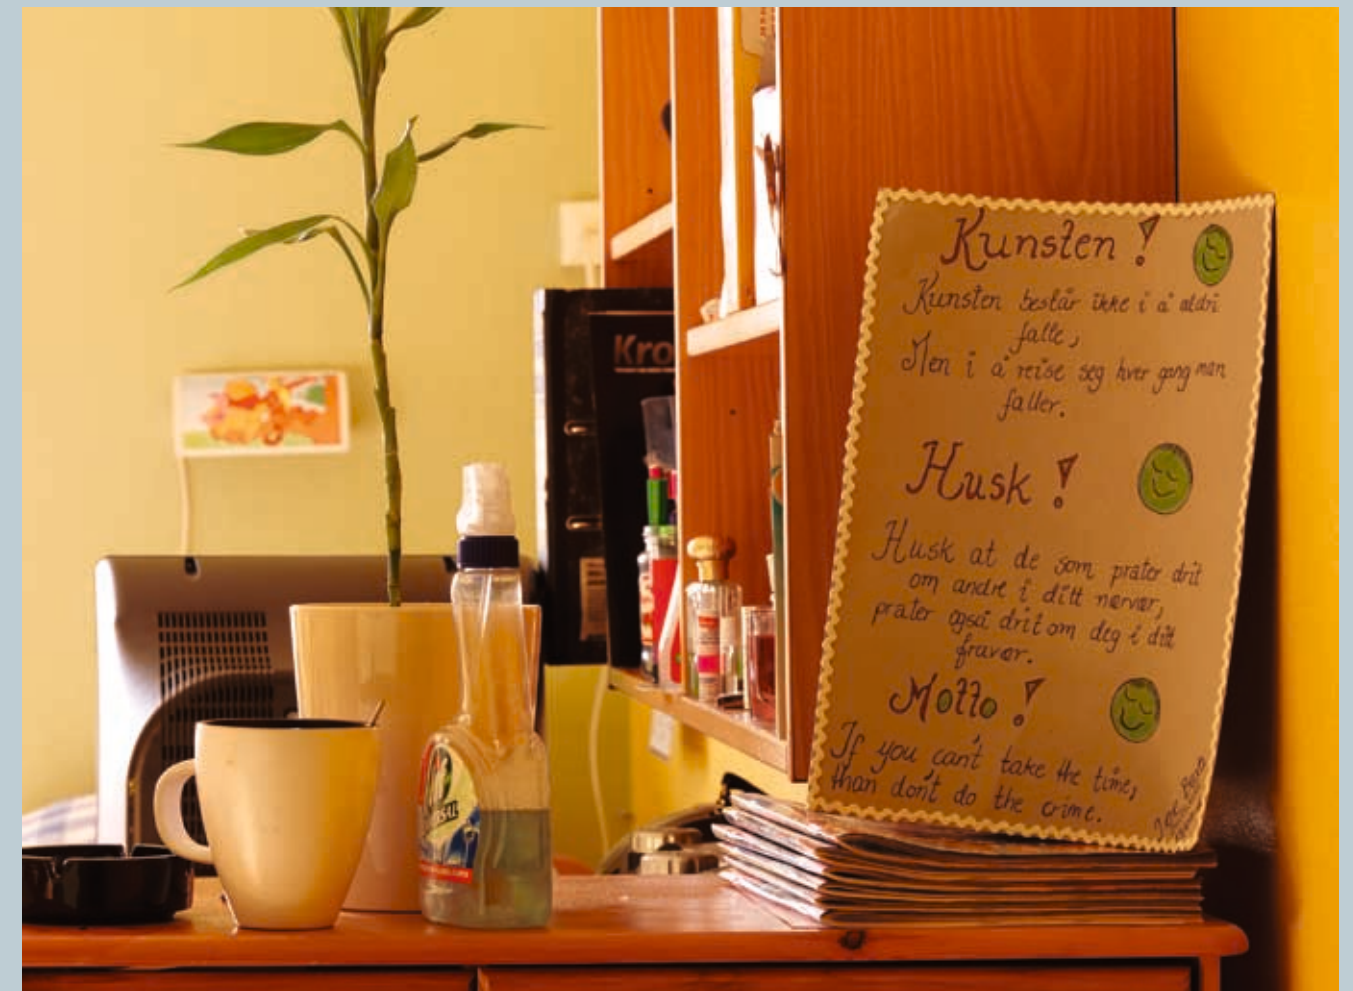 Kro
Kunsten!
Kunsten består ikke i å aldri
falle,
Men i å reise seg hver gang man
faller.
Husk!
Husk at de som prater drit
om andre i ditt nærvær,
prater også drit om deg i ditt
fravær.
Motto!
If you can't take the time,
than don't do the crime.